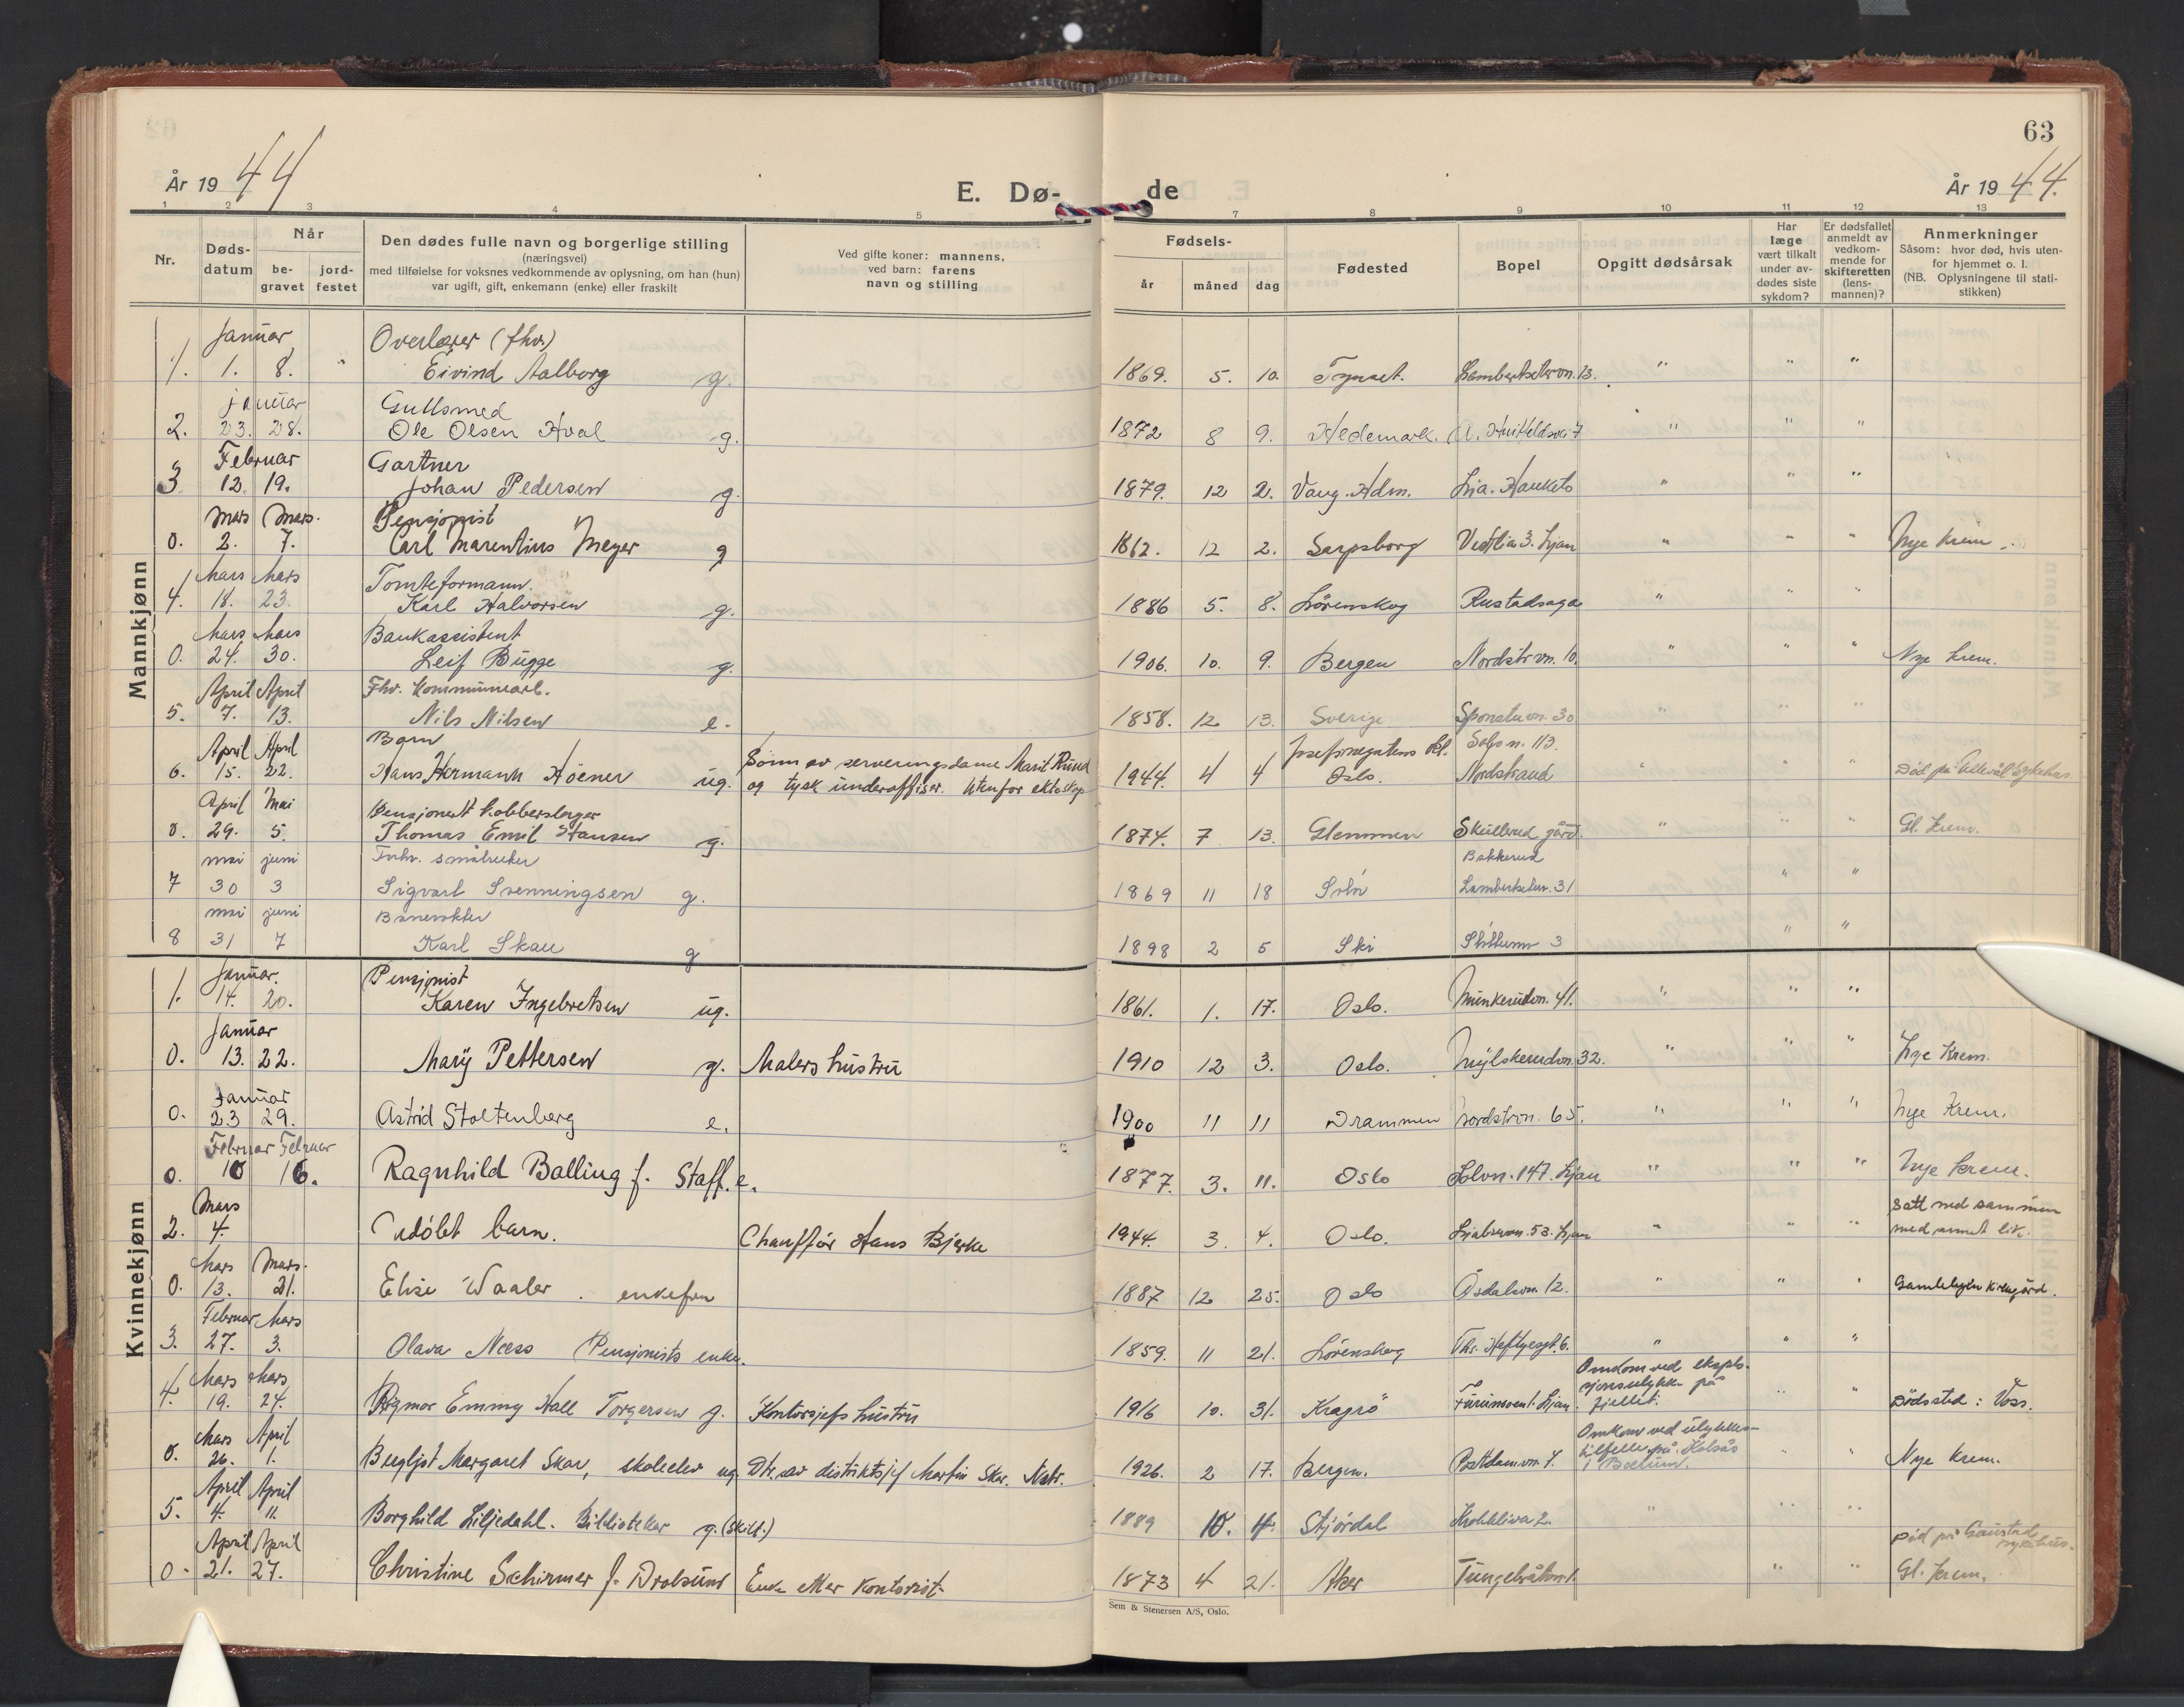 63
År 1944
E. Dø-
de
År 1944.
1 2 3 4 5 7 8 9 10 11 12 13
Nr.
Døds-
datum
Når
be-
gravet
jord-
festet
Den dødes fulle navn og borgerlige stilling
(næringsvei)
med tilføielse for voksnes vedkommende av oplysning, om han (hun)
var ugift, gift, enkemann (enke) eller fraskilt
Ved gifte koner: mannens,
ved barn: farens
navn og stilling
Fødsels-
år måned dag
Fødested
Bopel
Opgitt dødsårsak
Har
læge
vært tilkalt
under av-
dødes siste
sykdom?
Er dødsfallet
anmeldt av
vedkom-
mende for
skifteretten
(lens-
mannen)?
Anmerkninger
Såsom: hvor død, hvis uten-
for hjemmet o. l.
(NB. Oplysningene til stati-
stikken)
Mannkjønn
Januar Overlærer (fhv.)
1. 1. 8. " Eivind Aalborg g. 1869. 5. 10. Tynset. Lambertsetervn. 13. " " "
Januar Gullsmed
2. 23. 28. Ole Olsen Hval g. 1872 8 9. Hedemark. " " "
Februar Gartner
3 12. 19. Johan Pedersen g. 1879. 12 2. Vang. Hdm. Lia. Hauketo " " "
Mars Mars. Pensjonist
0. 2. 7. Carl Marentius Meyer g 1862. 12 2. Sarpsborg Vestlia 3. Ljan " " " Nye Krem.
Mars Mars Tomteformann.
4. 18. 23. Karl Halvorsen g. 1886 5. 8. Lörenskog Rustadsaga " " "
Mars Mars Bankassistent
0. 24. 30. Leif Bugge g. 1906. 10. 9. Bergen Nordstr vn. 10. " " " Nye Krem.
April April Fhv. Kommunearb.
5. 7. 13. Nils Nilsen e. 1858. 12 13. Sverige 30 " " "
April April Barn Sönn av serveringsdame Marit Rund Josefinegatens kl. Solvn. 113.
6. 15. 22. Hans Hermann Höener ug. og tysk underoffiser. Utenfor ekteskap 1944 4 4 Oslo. Nordstrand " " " Död på Ullevål Sykehus
April Mai Pensjonert kobberslager
0. 29. 5. Thomas Emil Hansen g. 1874. 7 13. Glemmen Skullerud gård. " " " Gl. Krem.
mai juni Bakkerud
7 30 3 Sigvart Svenningsen g. 1869 11 18 Lambertseterv. 31 " "
mai juni Banevokter
8 31 7 Karl Skau g 1898 2 5 Ski 3 " "
Kvinnekjønn
Januar. Pensjonist
1. 14. 20. Karen Ingebretsen ug. 1861. 1. 17. Oslo. Munkerudvn. 41. " " "
Januar
0. 13. 22. Mary Pettersen g. Malers hustru 1910 12 3. Oslo. 32. " " " Nye Krem.
Januar
0. 23 29. Astrid Stoltenberg e. 1900 11 11 Drammen Nordstrvn. 65. " " " Nye Krem.
Februar Februar
0. 10 16. Ragnhild Balling f. Staff. e. 1877. 3. 11. Oslo Solvn. 147. Ljan " " " Nye Krem.
Mars Satt ned sammen
2. 4. Udöbt barn. Chauffør Hans Bjerke 1944. 3. 4. Oslo. Ljabruvn. 53. Ljan " " " med annet lik.
Mars Mars.
0. 13. 21. Elise Waaler. enkefru 1887 12 25. Oslo Åsdalsvn. 12. " " " Gamlebyen Kirkegård.
Februar Mars
3. 27. 3. Olava Næss Pensjonists enke. 1859. 11 21. Lörenskog Th. Heftyesgt. 6. " " "
Mars Mars Omkom ved eksplo-
sjonsulykke på
4. 19. 24. Rigmor Emmy Hall Torgersen g. Kontorsjefs hustru 1916 10. 31. Kragrö Furumoen 1. Ljan. fjellet. " " Dödssted: Voss.
Mars April Omkom ved ulykkes-
tilfelle på Kolsås
0. 26. 1. Bergljot Margaret Skar, skoleelev ug. Dtr. av distriktssjef Martin Skar. Nstr. 1926. 2 17. Bergen. i Bærum. " " Nye Krem.
April April
5. 4. 11. Borghild Liljedahl. Bibliotekar g. (skilt.) 1889 10. 4. Stjördal Krokkliva 2. " " "
April April Död på Gaustad sykehus.
0. 21. 27. Christine Schirmer f. Drolsum Enke etter kontorist. 1873 4 21. Aker " " Gl. Krem.
Sem & Stenersen A/S, Oslo.